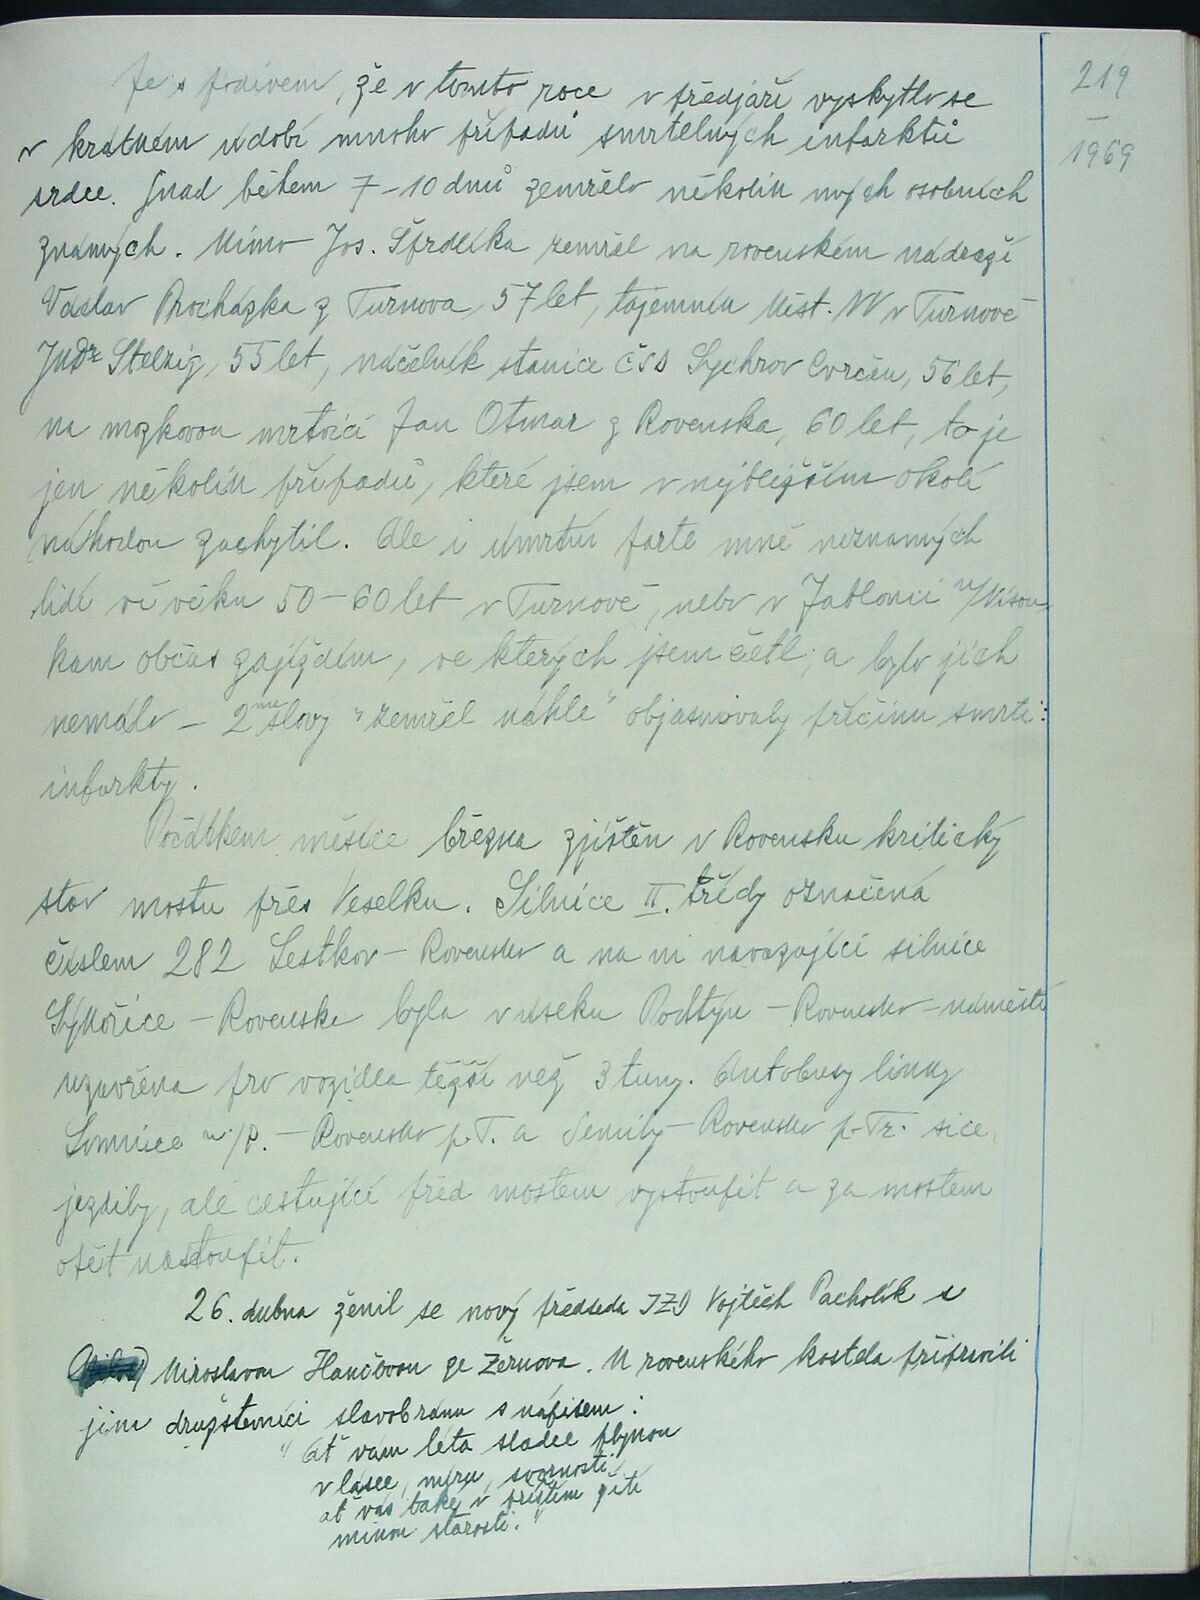 219
—
1969
Je s podivem, že v tomto roce v předjaří vyskytlo se
v krátkém údobí mnoho případů smrtelných infarktů
srdce. Snad během 7–10 dnů zemřelo několik mých osobních
známých. Mimo Jos. Šfrdlíka zemřel na rovenském nádraží
Václav Procházka z Turnova, 57 let, tajemník Míst. NV v Turnově
JUDr Stelzig, 55 let, náčelník stanice ČSD Sychrov Cvrček, 56 let,
na mozkovou mrtvici Jan Otmar z Rovenska, 60 let, to je
jen několik případů, které jsem v nejbližším okolí
náhodou zachytil. Ale i úmrtní parte mně neznámých
lidí ve věku 50–60 let v Turnově, nebo v Jablonci n/Nisou
kam občas zajíždím, ve kterých jsem četl, a bylo jich
nemálo – 2mě slovy "zemřel náhle" objasňovaly příčinu smrti:
infarkty.
Počátkem měsíce března zjištěn v Rovensku kritický
stav mostu přes Veselku. Silnice II. třídy označená
číslem 282 Lestkov – Rovensko a na ni navazující silnice
Sýkořice – Rovensko byla v úseku Podtýn – Rovensko – náměstí
uzavřena pro vozidla těžší než 3 tuny. Autobusy linky
Lomnice n./P. – Rovensko p.T. a Semily – Rovensko p. Tr. sice
jezdily, ale cestující před mostem vystoupit a za mostem
opět nastoupit.
26. dubna ženil se nový předseda JZD Vojtěch Pacholík s
Miroslavou Hančovou ze Žernova. U rovenského kostela připravili
jim družstevníci slavobránu s nápisem:
"Ať vám léta sladce plynou
v lásce, míru, svornosti,
ať vás také v příštím žití
minou starosti."